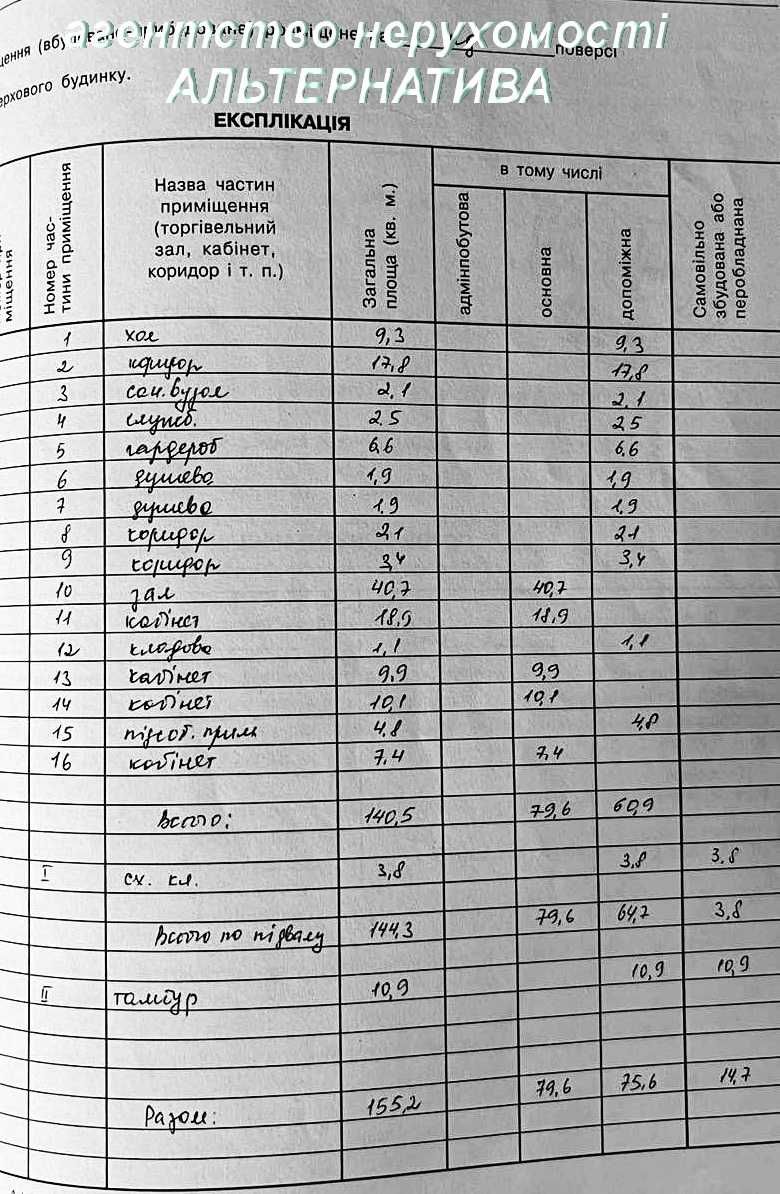 агентство нерухомості
АЛЬТЕРНАТИВА
щення (вбудоване, прибудоване) розміщене на поверсі
ерхового будинку.
ЕКСПЛІКАЦІЯ
міщення | Номер час-тини приміщення | Назва частин приміщення (торгівельний зал, кабінет, коридор і т. п.) | Загальна площа (кв. м.) | в тому числі | адмінпобутова | основна | допоміжна | Самовільно збудована або переобладнана
1 хол 9,3 9,3
2 коридор 17,8 17,8
3 сан.вузол 2.1 2.1
4 служб. 2.5 2.5
5 гардероб 6.6 6.6
6 душева 1,9 1,9
7 душева 1.9 1.9
8 коридор 2.1 2.1
9 коридор 3,4 3,4
10 зал 40,7 40,7
11 кабінет 18,9 18,9
12 кладова 1,1 1,1
13 кабінет 9,9 9,9
14 кабінет 10,1 10,1
15 підсоб. прим 4.8 4,8
16 кабінет 7,4 7,4
Всього: 140,5 79,6 60,9
I сх. кл. 3,8 3,8 3.8
Всього по підвалу 144,3 79,6 64,7 3,8
II тамбур 10,9 10,9 10,9
Разом: 155,2 79,6 75,6 14,7